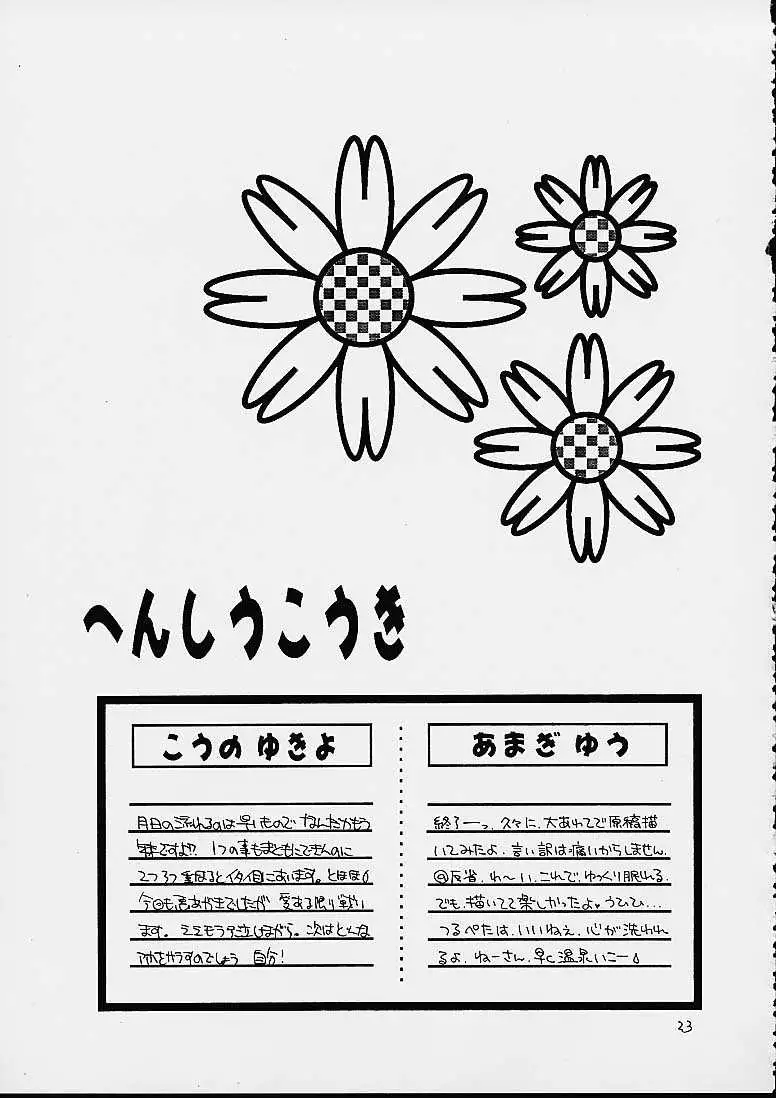 へんしうこうき
こうの ゆきよ
月日の流れるのは早いもので なんだかもう
年末ですよ!? 1つの事もまともにできんのに
2つ3つ重なるとイタイ目にあいます。とほほ
今回も悪あがきでしたが 愛ある限り戦い
ます。しながら。次はどんな
のでしょう 自分!
あまぎ ゆう
終了ーっ、久々に、大あわてで原稿描
いてみたよ、言い訳は痛いからしません。
反省、わ〜い、これで、ゆっくり眠れる。
でも、描いてて楽しかったよ♥うひひ...
つるぺたは、いいねぇ、心が洗われ
るよ、ねーさん、早く温泉いこー♪
23